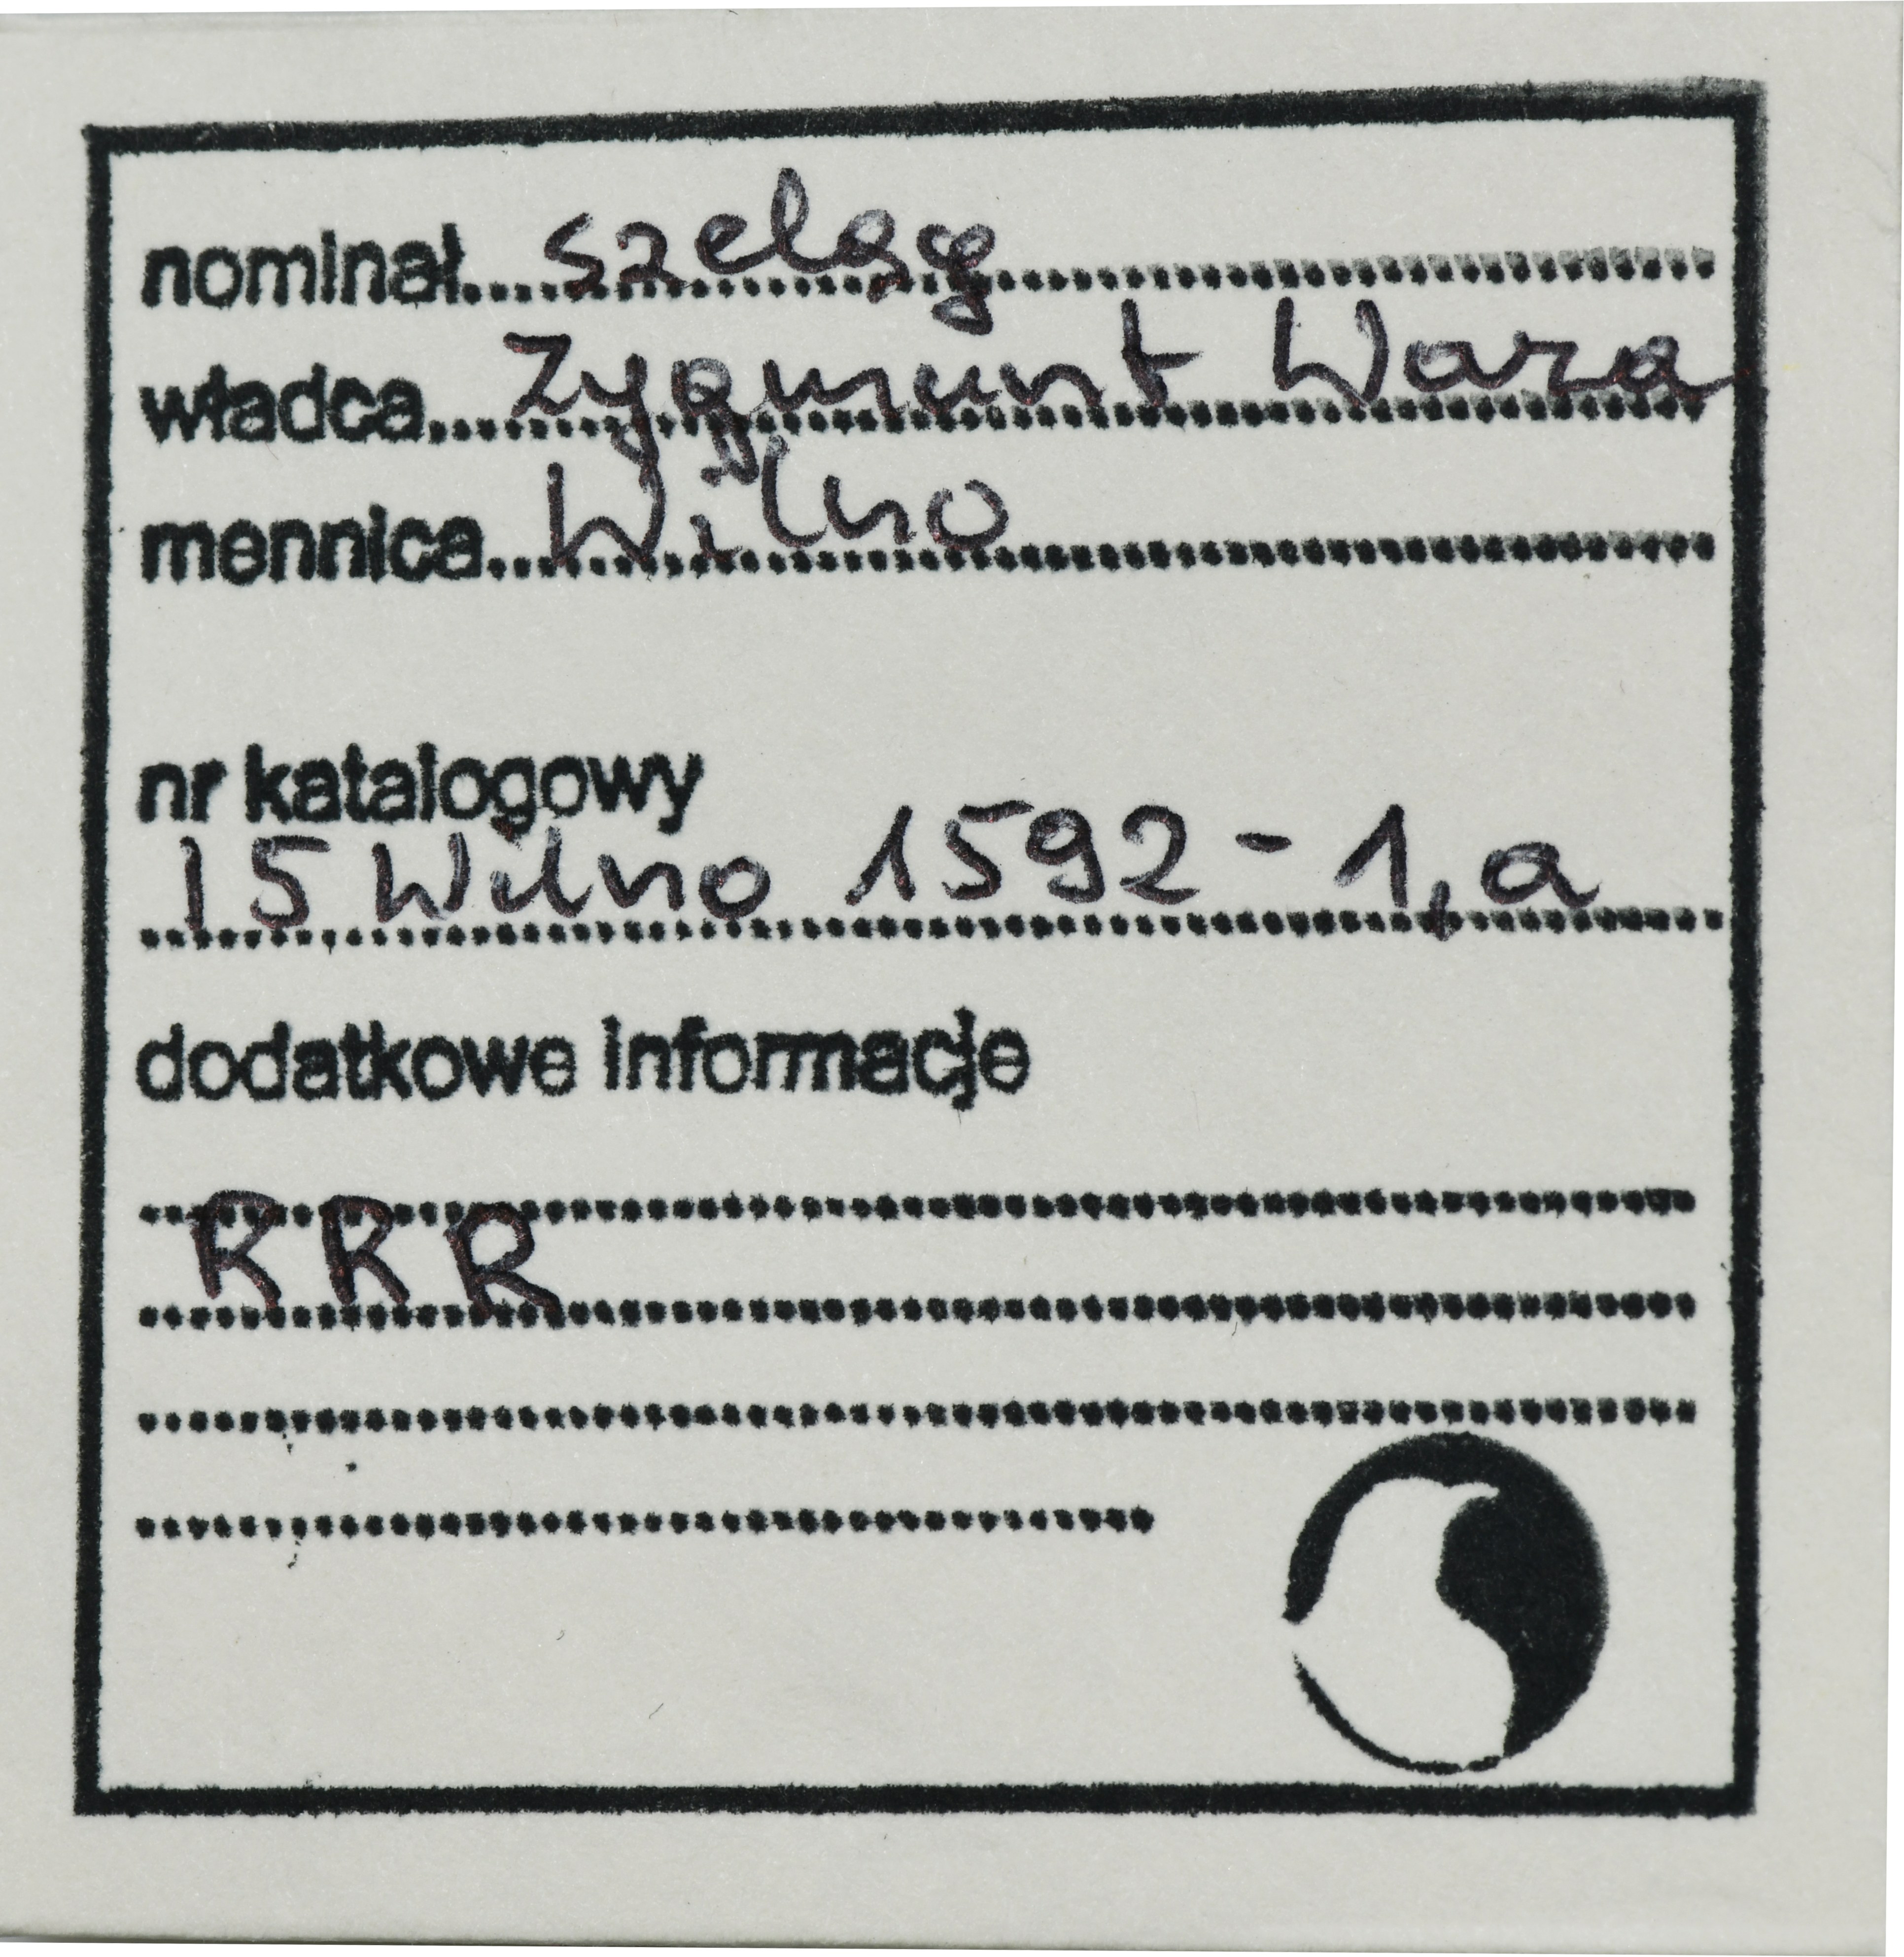 nominał.... szeląg
władca.... Zygmunt Waza
mennica... Wilno
nr katalogowy
15 Wilno 1592 - 1,a
dodatkowe informacje
RRR